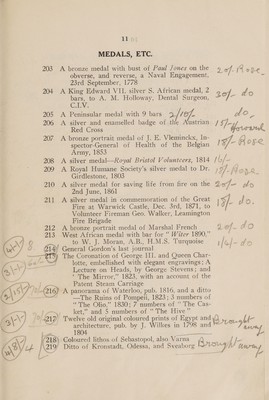 11
MEDALS, ETC.
203 A bronze medal with bust of Paul Jones on the 20/- Rose
obverse, and reverse, a Naval Engagement,
23rd September, 1778
204 A King Edward VII. silver S. African medal, 2 20/- do
bars, to A. M. Holloway, Dental Surgeon,
C.I.V.
205 A Peninsular medal with 9 bars 2/10/- do
206 A silver and enamelled badge of the Austrian 15/-
Red Cross
207 A bronze portrait medal of J. E. Vleminckx, In- 18/- Rose
spector-General of Health of the Belgian
Army, 1853
208 A silver medal—Royal Bristol Volunteers, 1814 16/-
209 A Royal Humane Society's silver medal to Dr. Rose
Girdlestone, 1803
210 A silver medal for saving life from fire on the 20/- do
2nd June, 1861
211 A silver medal in commemoration of the Great 18/- do
Fire at Warwick Castle, Dec. 3rd, 1871, to
Volunteer Fireman Geo. Walker, Leamington
Fire Brigade
212 A bronze portrait medal of Marshal French 2/- do
213 West African medal with bar for "Witee 1890," 1/4/- do
to W. J. Moran, A.B., H.M.S. Turquoise
214 General Gordon's last journal
215 The Coronation of George III. and Queen Char-
lotte, embellished with elegant engravings; A
Lecture on Heads, by George Stevens; and
"The Mirror," 1823, with an account of the
Patent Steam Carriage
216 A panorama of Waterloo, pub. 1816, and a ditto
—The Ruins of Pompeii, 1823; 3 numbers of
"The Olio," 1830; 7 numbers of "The Cas-
ket," and 5 numbers of "The Hive"
217 Twelve old original coloured prints of Egypt and Brought
architecture, pub. by J. Wilkes in 1798 and away
1804
218 Coloured lithos of Sebastopol, also Varna
219 Ditto of Kronstadt, Odessa, and Sveaborg Brought
away